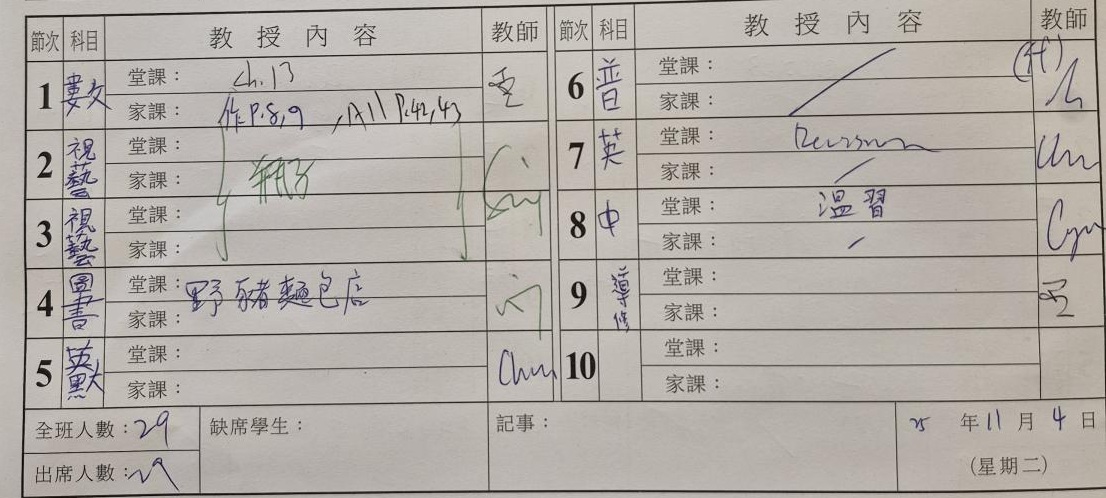 節次 科目 教授內容 教師
1 數 堂課： Ch.13
家課： 作P.8,9 , A11 P.42,43
2 視藝 堂課：
家課：
3 視藝 堂課：
家課：
4 圖書 堂課： 野豬麵包店
家課：
5 英默 堂課：
家課：
Chu
節次 科目 教授內容 教師
6 普 堂課：
家課：
(代)
7 英 堂課： Revision
家課：
8 中 堂課： 溫習
家課：
9 導修 堂課：
家課：
10 堂課：
家課：
全班人數：29
出席人數：29
缺席學生：
記事：
25 年 11 月 4 日
(星期二)